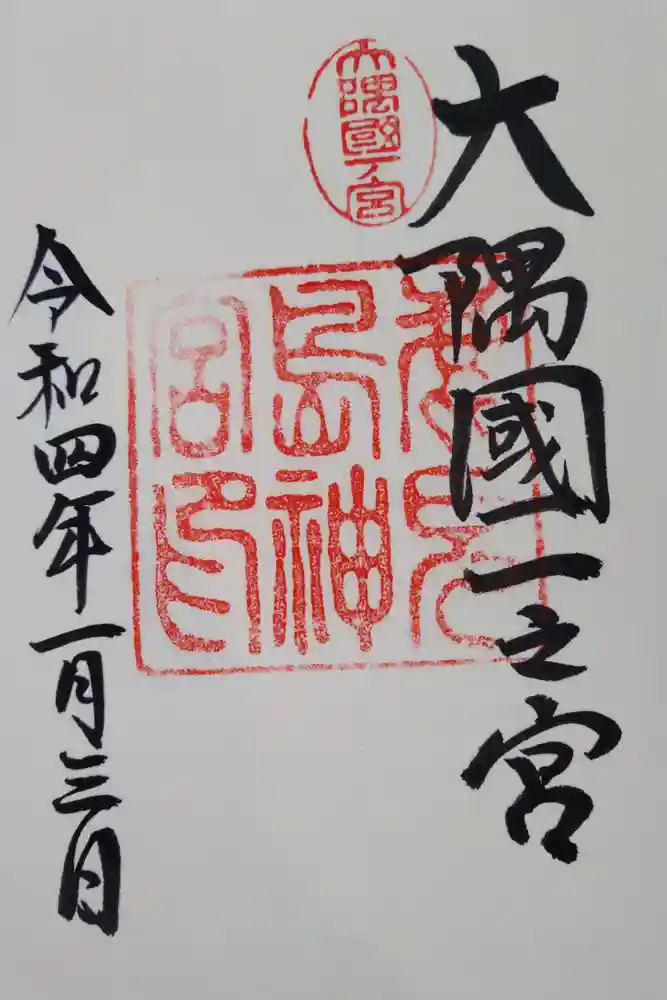 大隅國一之宮
大隅國一ノ宮
鹿兒
島神
宮印
令和四年一月三日